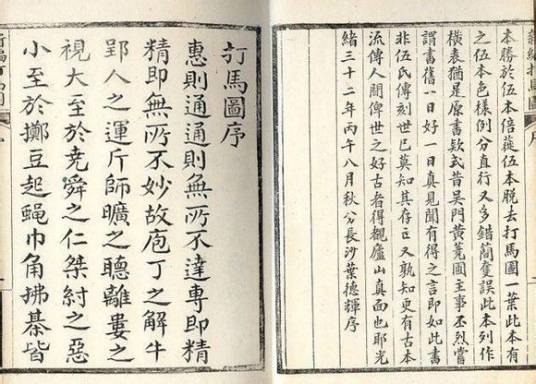 本勝於伍本倍蓰伍本脫去打馬圖一葉此本有
之伍本色樣例分直行又多錯簡奪誤此本列作
橫表猶是原書款式昔吳門黃蕘圃主事丕烈嘗
謂書舊一日好一日真見聞有得之言即如此書
非伍氏傳刻世已莫知其存亡又孰知更有古本
流傳人間俾世之好古者得覩廬山真面也耶光
緒三十二年丙午八月秋分長沙葉德輝序
打馬圖序
惠則通通則無所不達專即精
精即無所不妙故庖丁之解牛
郢人之運斤師曠之聽離婁之
視大至於堯舜之仁桀紂之惡
小至於擲豆起蠅巾角拂棊皆